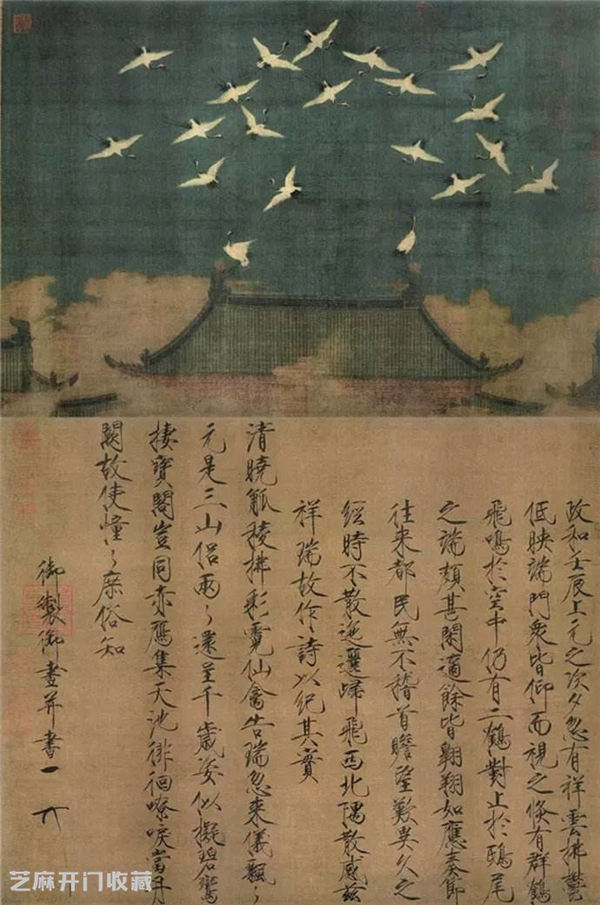 政和壬辰上元之次夕忽有祥雲拂鬱
低映端門衆皆仰而視之倏有群鶴
飛鳴於空中仍有二鶴對止於鴟尾
之端頗甚閑適餘皆翱翔如應奏節
往來都民無不稽首瞻望歎異久之
經時不散迤邐歸飛西北隅散感茲
祥瑞故作詩以紀其實
清曉觚稜拂彩霓仙禽告瑞忽來儀飄々
元是三山侶兩々還呈千歲姿似擬碧鸞
棲寶閣豈同赤鴈集天池徘徊嘹唳當丹
闕故使憧々庶俗知
御製御畫并書一
芝麻开门收藏